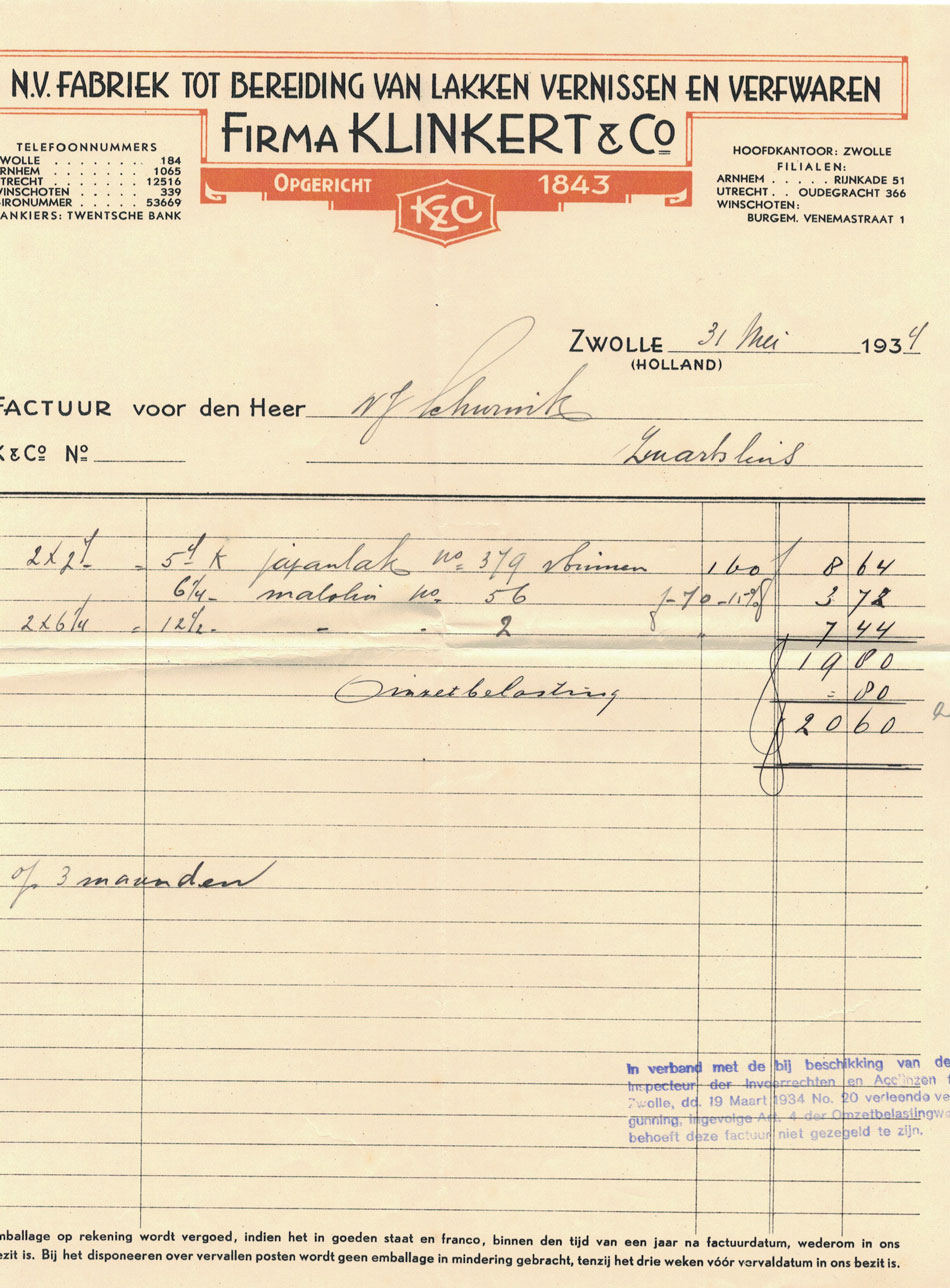 N.V. FABRIEK TOT BEREIDING VAN LAKKEN VERNISSEN EN VERFWAREN
FIRMA KLINKERT & Co
OPGERICHT 1843
K&C
TELEFOONNUMMERS
WOLLE . . . . . . . 184
RNHEM . . . . . . 1065
TRECHT . . . . . . 12516
WINSCHOTEN . . . . 339
IRONUMMER . . . . 53669
ANKIERS: TWENTSCHE BANK
HOOFDKANTOOR: ZWOLLE
FILIALEN:
ARNHEM . . . . RIJNKADE 51
UTRECHT . . OUDEGRACHT 366
WINSCHOTEN:
BURGEM. VENEMASTRAAT 1
ZWOLLE 31 Mei 1934
(HOLLAND)
FACTUUR voor den Heer
K&Co No
Zwartsluis
5 K japanlak no 379 160 8 64
6¼ no 56 3 72
2x6¼ = 12½ - - 2 " 7 44
19 80
Omzetbelasting = 80
20 60
op 3 maanden
In verband met de bij beschikking van de
Inspecteur der Invoerrechten en Accijnzen t
Zwolle, dd. 19 Maart 1934 No. 20 verleende ve
gunning, ingevolge Art. 4 der Omzetbelastingw
behoeft deze factuur niet gezegeld te zijn.
mballage op rekening wordt vergoed, indien het in goeden staat en franco, binnen den tijd van een jaar na factuurdatum, wederom in ons
ezit is. Bij het disponeeren over vervallen posten wordt geen emballage in mindering gebracht, tenzij het drie weken vóór vervaldatum in ons bezit is.